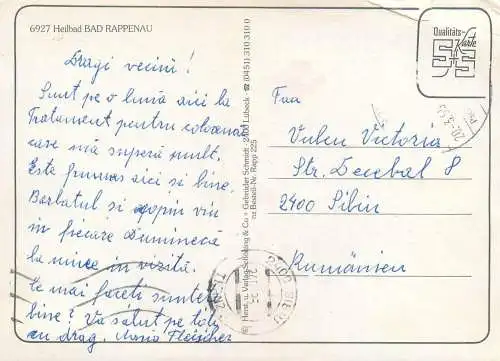 6927 Heilbad BAD RAPPENAU
Dragi vecini!
Sunt pe o lună aici la
Tratament pentru coloană
care mă supără mult.
Este frumos aici si bine.
Barbatul si copiii vin
in fiecare Duminecă
la mine in vizită.
Ce mai faceti sunteti
bine? Va salut pe toti
cu drag, Maria Fleischer
© Herst. u. Verlag Schöning & Co + Gebrüder Schmidt · 2400 Lübeck · ☎ (0451) 310 310 0
Bestell-Nr. Rapp 225
Qualitäts-
Karte
S+S
Frau
Vulcu Victoria
Str. Decebal 8
2400 Sibiu
Rumänien